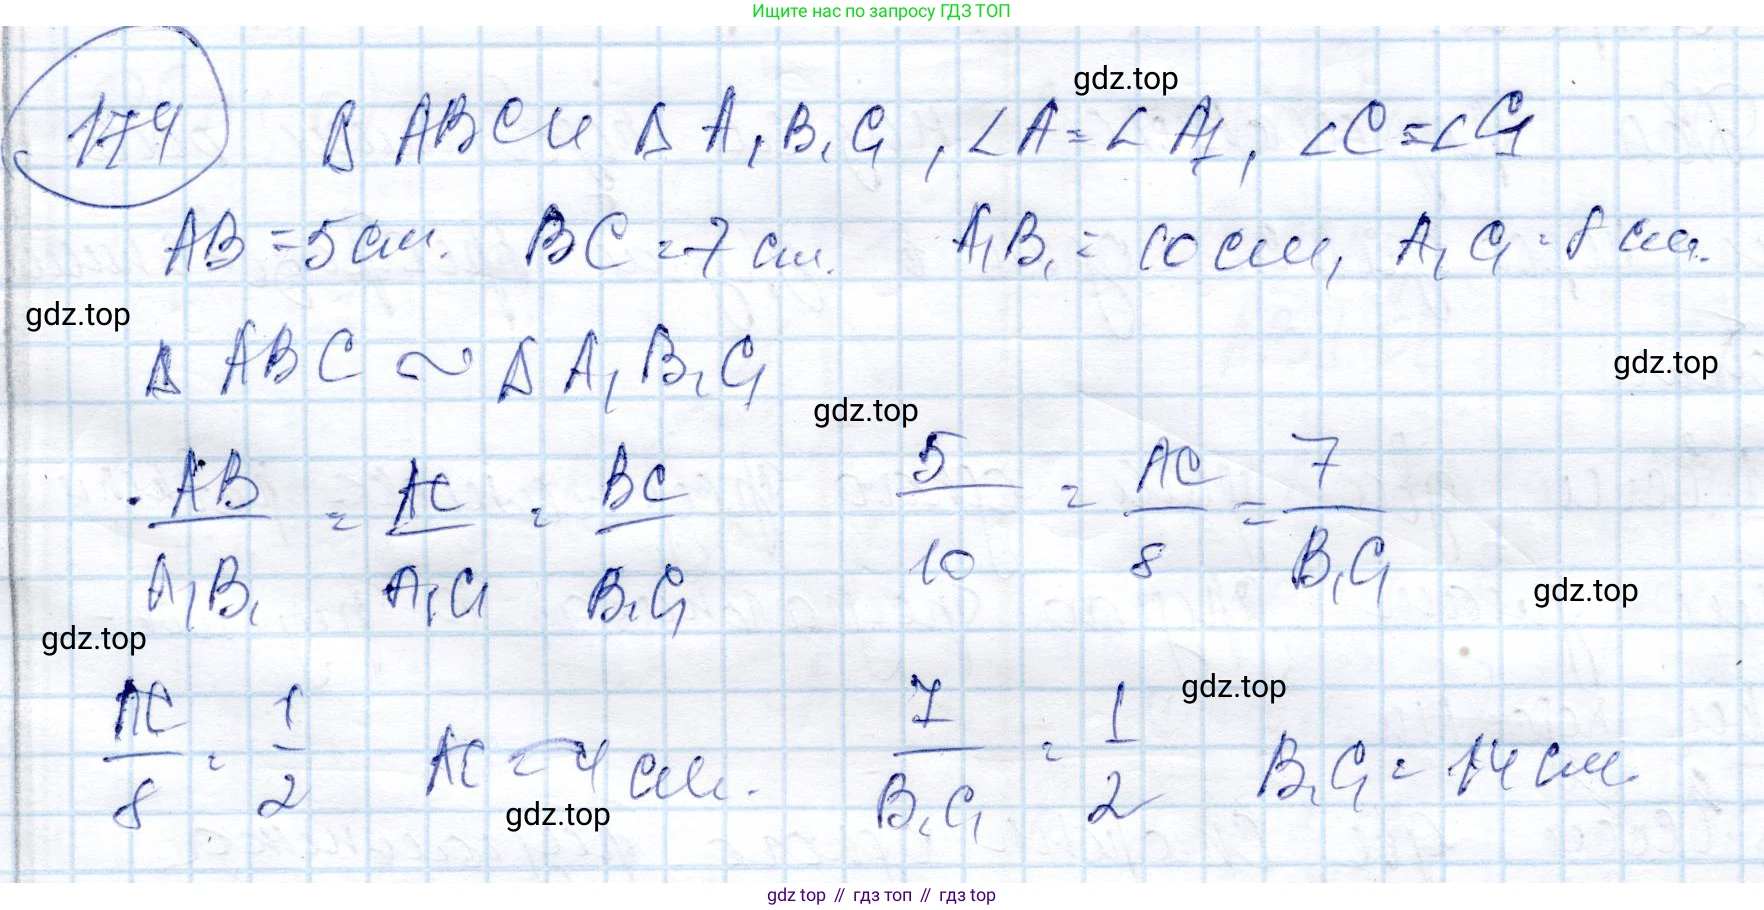 Ищите нас по запросу ГДЗ ТОП
gdz.top
174 Δ ABC и Δ A₁B₁C₁, ∠A = ∠A₁, ∠C = ∠C₁
AB = 5 см. BC = 7 см. A₁B₁ = 10 см, A₁C₁ = 8 см.
gdz.top
Δ ABC ∼ Δ A₁B₁C₁
gdz.top
gdz.top
AB/A₁B₁ = AC/A₁C₁ = BC/B₁C₁ 5/10 = AC/8 = 7/B₁C₁
gdz.top
gdz.top
gdz.top
AC/8 = 1/2 AC = 4 см. 7/B₁C₁ = 1/2 B₁C₁ = 14 см.
gdz.top
gdz top // гдз топ // гдз top